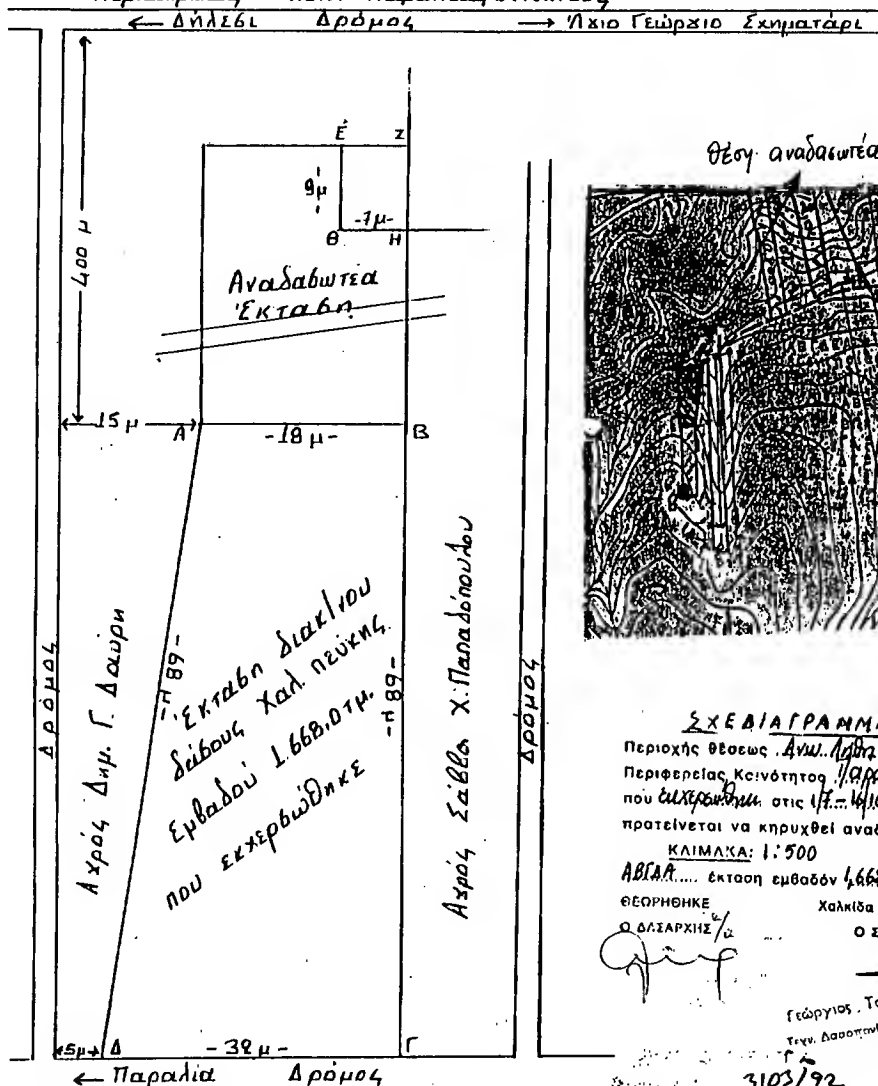 ← Δήλεσι Δρόμος → Άγιο Γεώργιο Σχηματάρι
400 μ
Ε Ζ
9μ
-7μ-
Θ Η
Αναδασωτέα
Έκταση
15 μ
Α -18 μ- Β
Δρόμος
Αγρός Δημ. Γ. Δαύρη
-89 μ-
Έκταση διακ/νου
δάσους Χαλ. πεύκης
Εμβαδού 1.668,0 τμ.
που εκχερσώθηκε
-89 μ-
Αγρός Σάββα Χ. Παπαδόπουλου
Δρόμος
5μ Δ -32 μ- Γ
← Παραλία Δρόμος
θέση αναδασωτέα
ΣΧΕΔΙΑΓΡΑΜΜ
Περιοχής θέσεως Άνω
Περιφερείας Κοινότητος
που εκχερσώθηκε στις
πρατείνεται να κηρυχθεί αναδ
ΚΛΙΜΑΚΑ: 1:500
ΑΒΓΔΑ έκταση εμβαδόν 1,668
ΘΕΩΡΗΘΗΚΕ Χαλκίδα
Ο ΔΑΣΑΡΧΗΣ Ο Σ
Γεώργιος
Τεχν. Δασοπον
3103/92